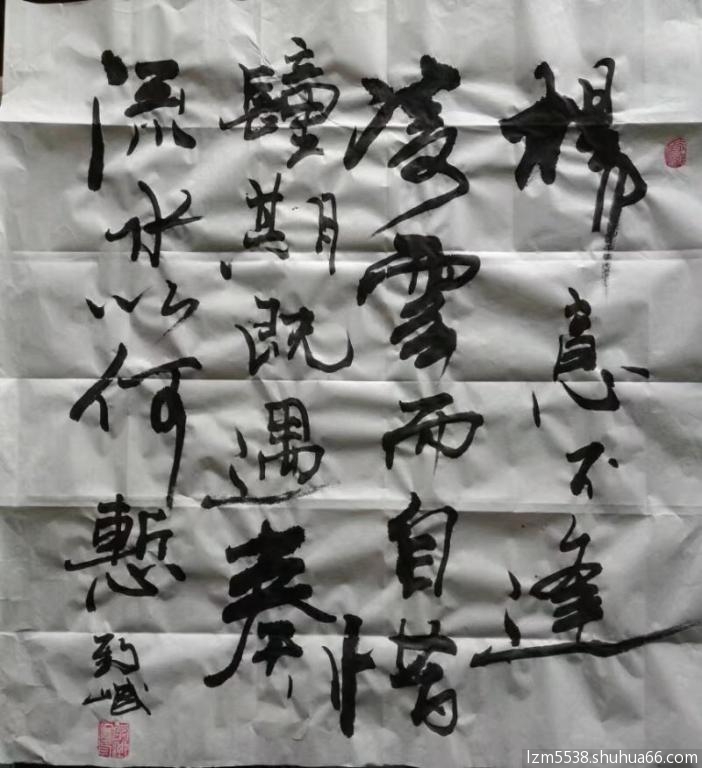 楊意不逢
凌雲而自惜
鐘期既遇奏
流水以何慙
lzm5538.shuhua66.com